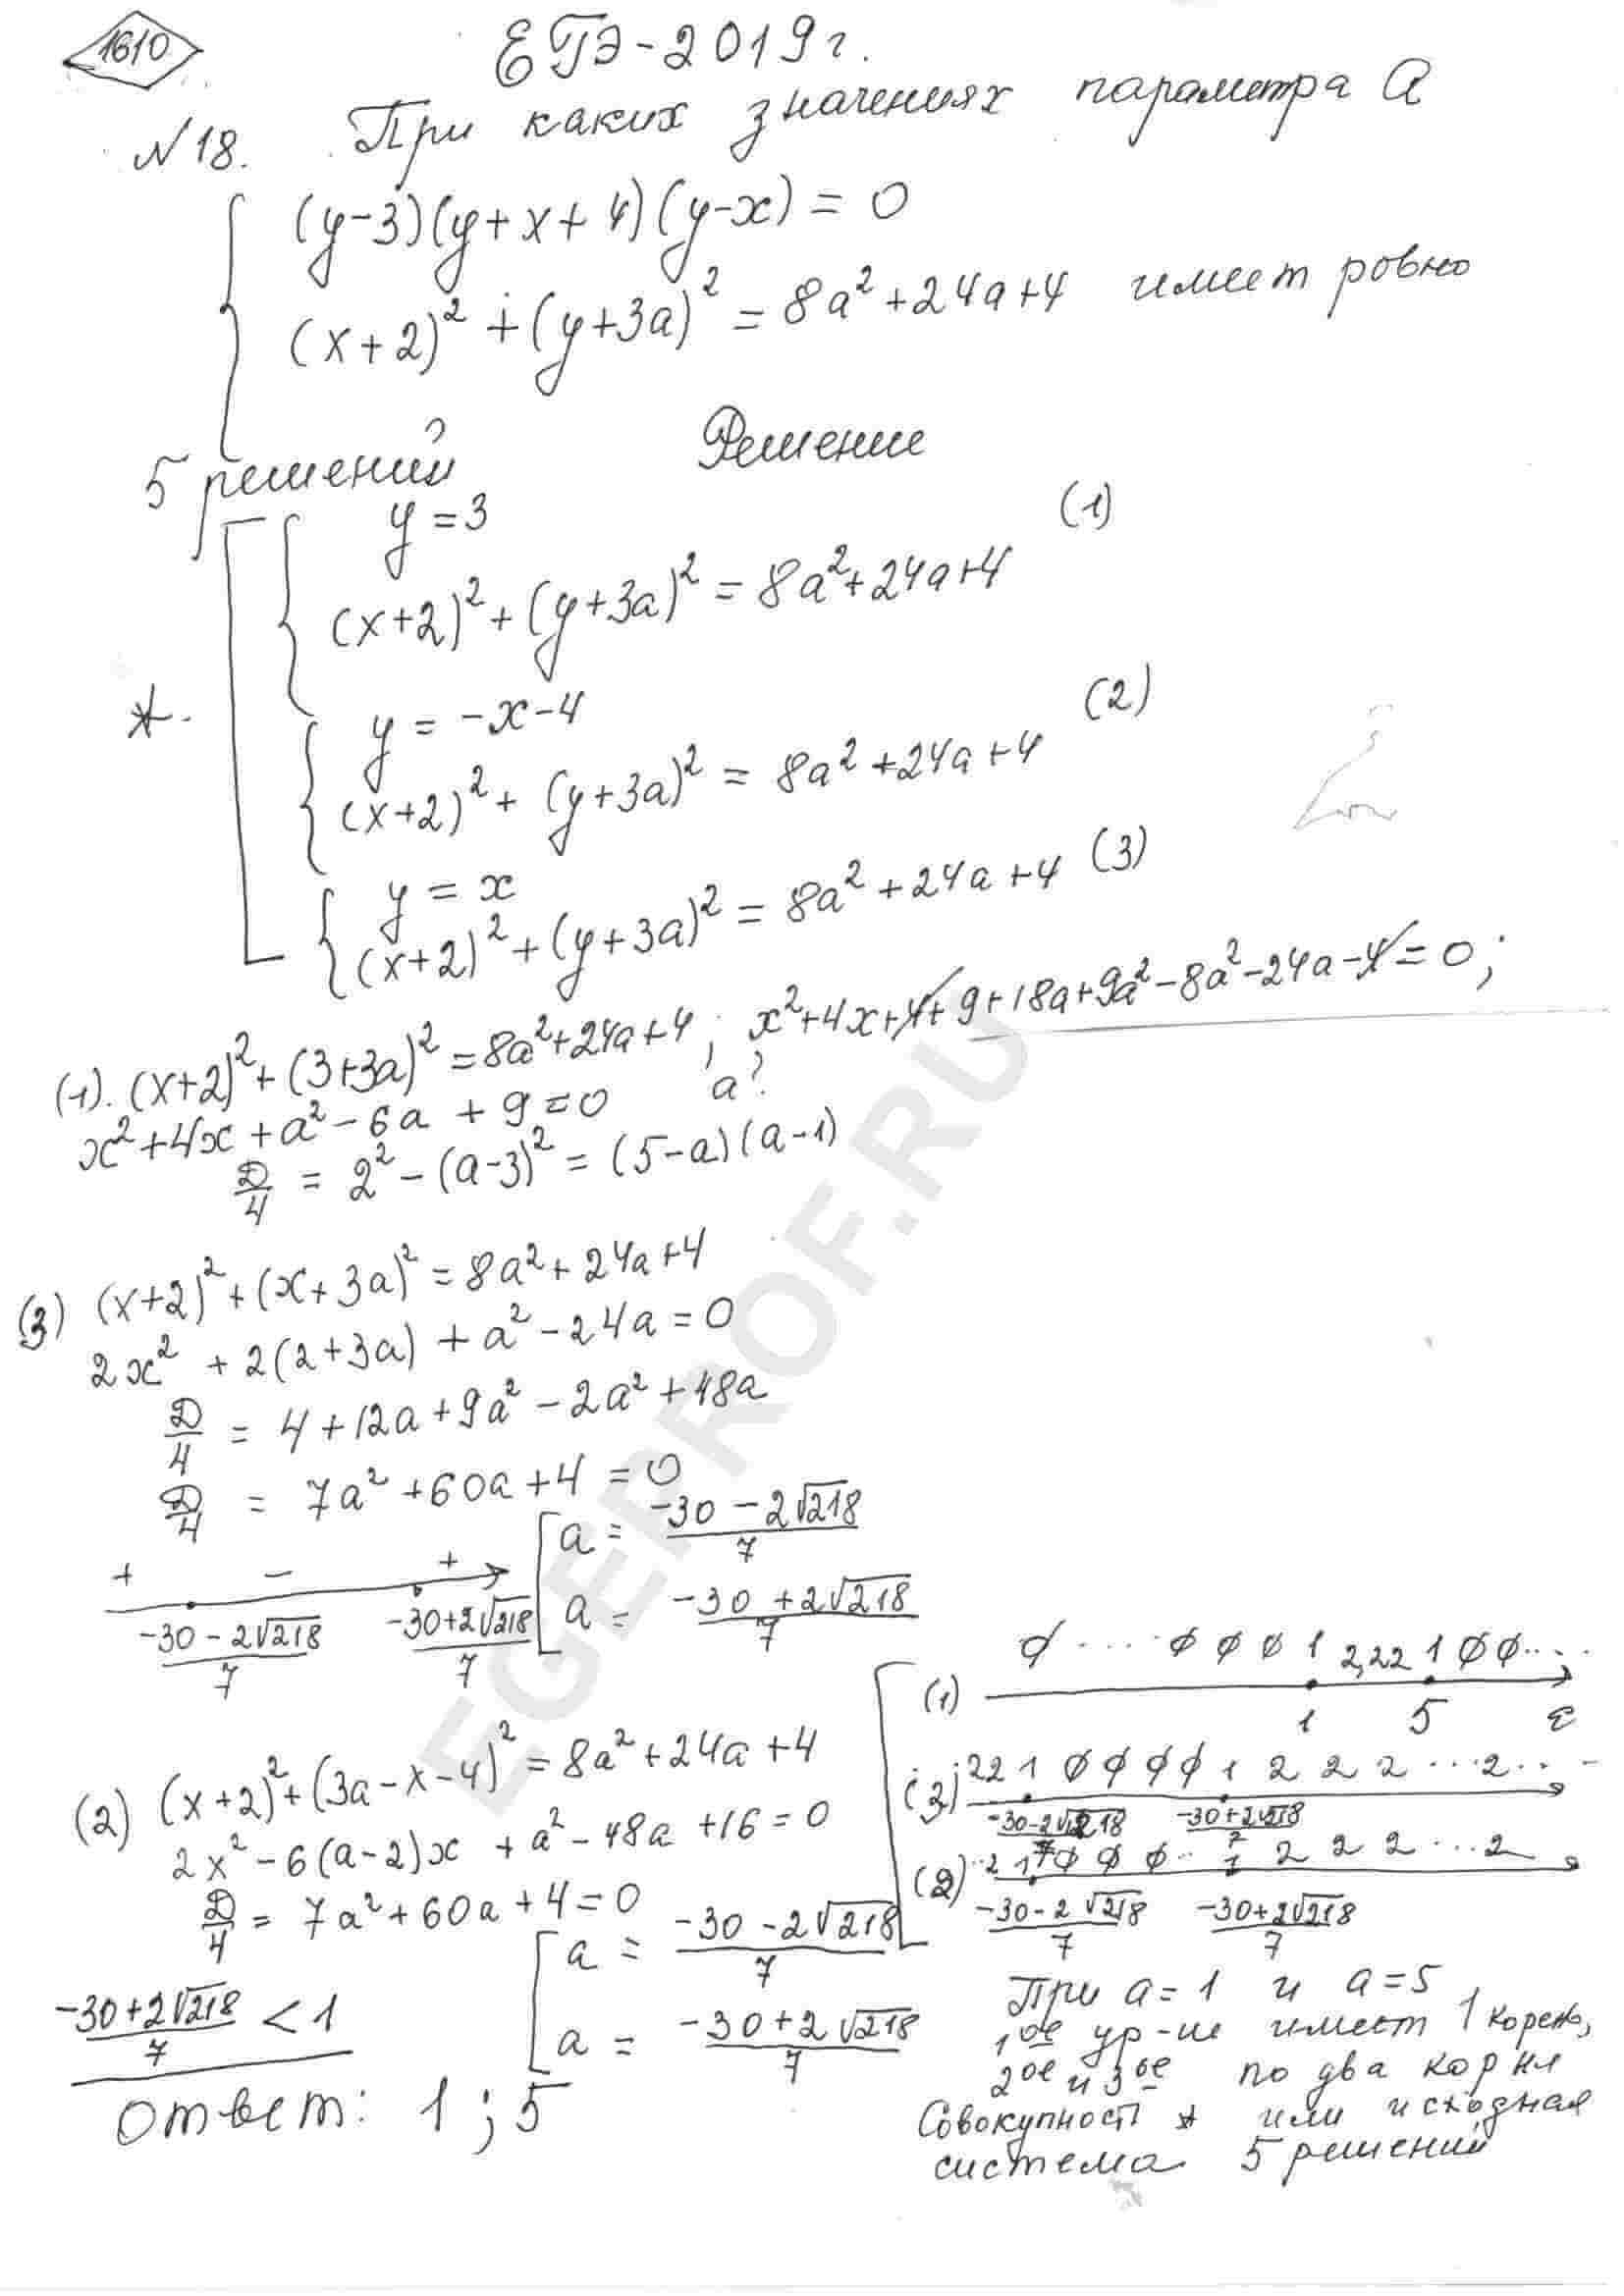 1610
ЕГЭ-2019г.
№18. При каких значениях параметра a
(y-3)(y+x+4)(y-x)=0
(x+2)²+(y+3a)²=8a²+24a+4 имеет ровно
5 решений?
Решение
y=3 (1)
(x+2)²+(y+3a)²=8a²+24a+4
*.
y=-x-4 (2)
(x+2)²+(y+3a)²=8a²+24a+4
y=x
(x+2)²+(y+3a)²=8a²+24a+4 (3)
(1). (x+2)²+(3+3a)²=8a²+24a+4; x²+4x+4+9+18a+9a²-8a²-24a-4=0;
x²+4x+a²-6a+9=0 a?
D/4=2²-(a-3)²=(5-a)(a-1)
(3) (x+2)²+(x+3a)²=8a²+24a+4
2x²+2(2+3a)+a²-24a=0
D/4=4+12a+9a²-2a²+48a
D/4=7a²+60a+4=0
a=(-30-2√218)/7
a=(-30+2√218)/7
+ - +
(-30-2√218)/7 (-30+2√218)/7
(2) (x+2)²+(3a-x-4)²=8a²+24a+4
2x²-6(a-2)x+a²-48a+16=0
D/4=7a²+60a+4=0
a=(-30-2√218)/7
a=(-30+2√218)/7
(-30+2√218)/7<1
Ответ: 1; 5
(1) ∅ .... ∅ ∅ ∅ 1 2,22 1 ∅ ∅....
1 5
(3) 2 2 1 ∅ ∅ ∅ ∅ 1 2 2 2 ...2...
(-30-2√218)/7 (-30+2√218)/7
(2) ..2 1 ∅ ∅ ∅.. 1 2 2 2 ...2
(-30-2√218)/7 (-30+2√218)/7
При a=1 и a=5
1ое ур-ие имеет 1 корень,
2ое и 3ье по два корня
Совокупност * или исходная
система 5 решений
EGEPROF.RU